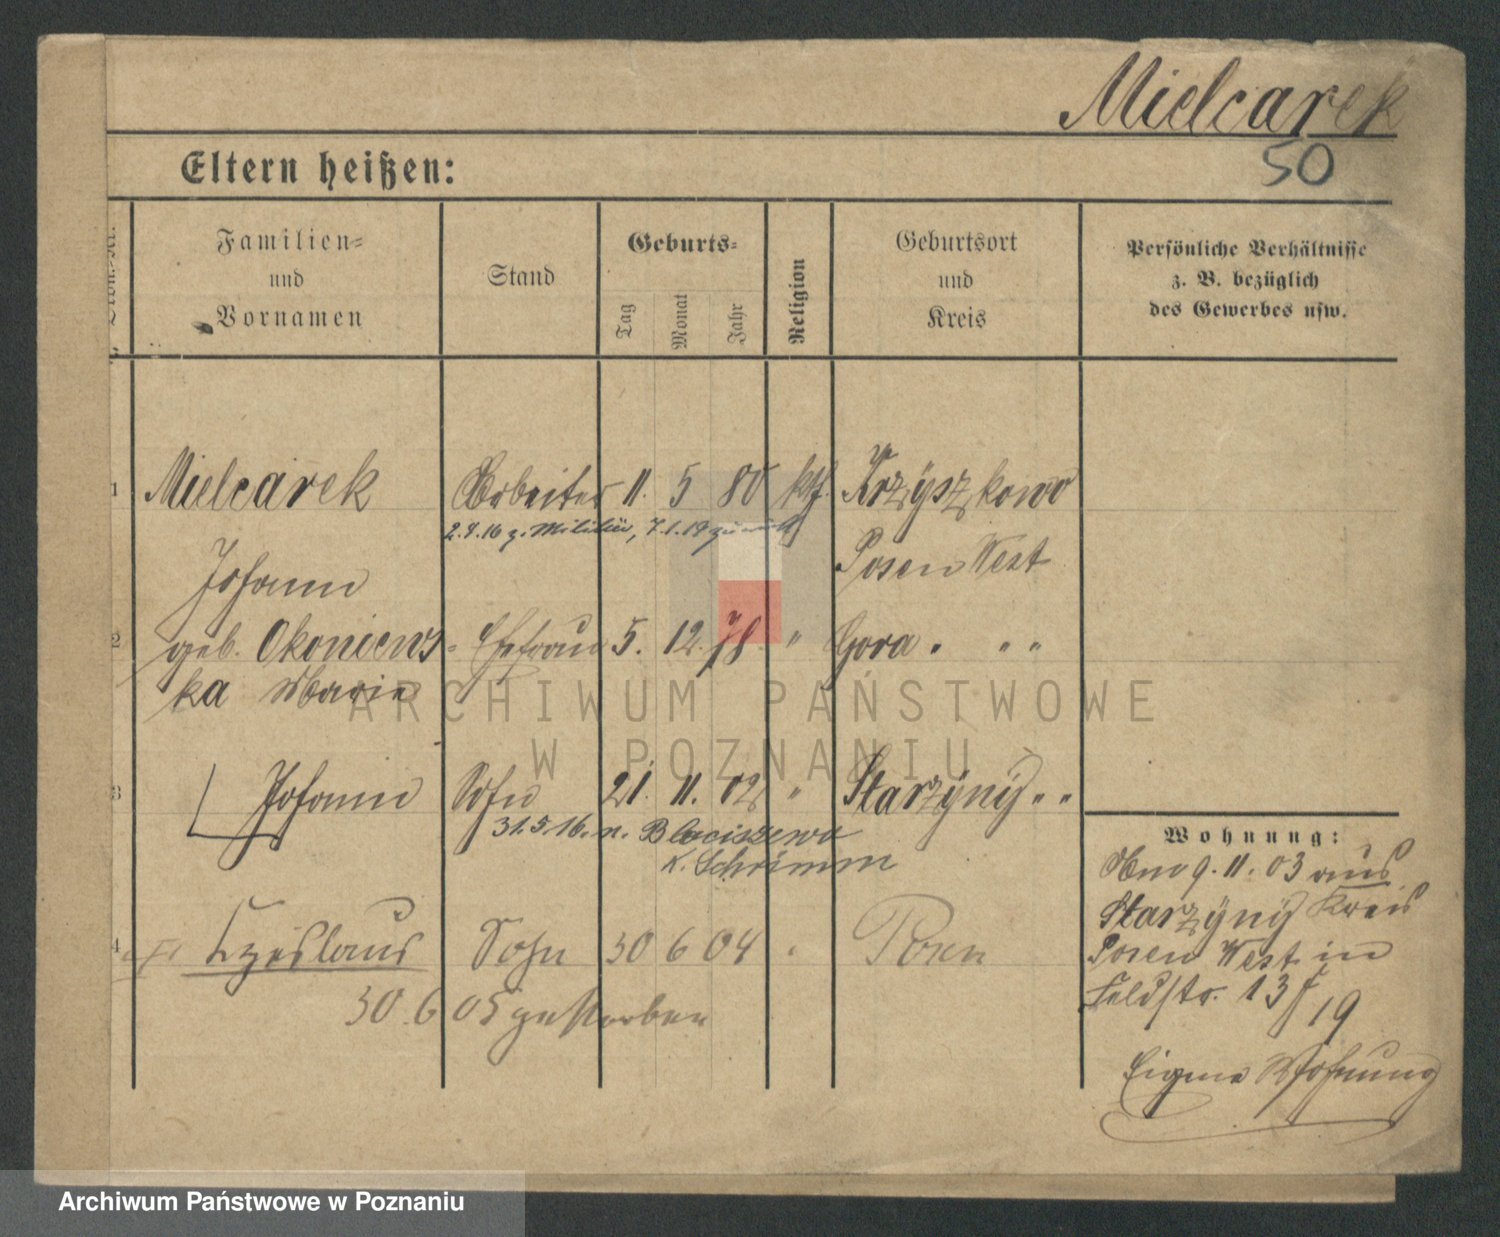 Mielcarek
50
Eltern heißen:
Familien-
und
Vornamen
Stand
Geburts-
Tag
Monat
Jahr
Religion
Geburtsort
und
Kreis
Persönliche Verhältnisse
z. B. bezüglich
des Gewerbes usw.
1 Mielcarek Arbeiter 11. 5 80 kth. Krzyszkowo
2.4.16 z. Militär, 7.1.19 zurück
Johann Posen West
2 geb. Okoniews- Ehefrau 5. 12. 78 " Gora " " "
ka Marie
3 Johann Sohn 21. 11. 02 " Starzÿnÿ " "
31.5.16. n. Blociszewo
K. Schrimm
4 Czeslaus Sohn 30 6 04 " Posen
30.6 05 gestorben
Wohnung:
Am 9.11.03 aus
Starzÿnÿ Kreis
Posen West in
Feldstr. 13 I
19
Eigene Wohnung
ARCHIWUM PAŃSTWOWE
W POZNANIU
Archiwum Państwowe w Poznaniu